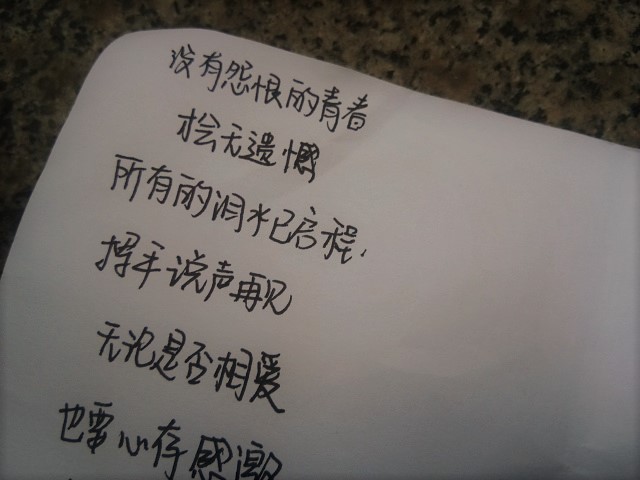 没有怨恨的青春
才会无遗憾
所有的泪水已启程,
挥手说声再见
无论是否相爱
也要心存感激